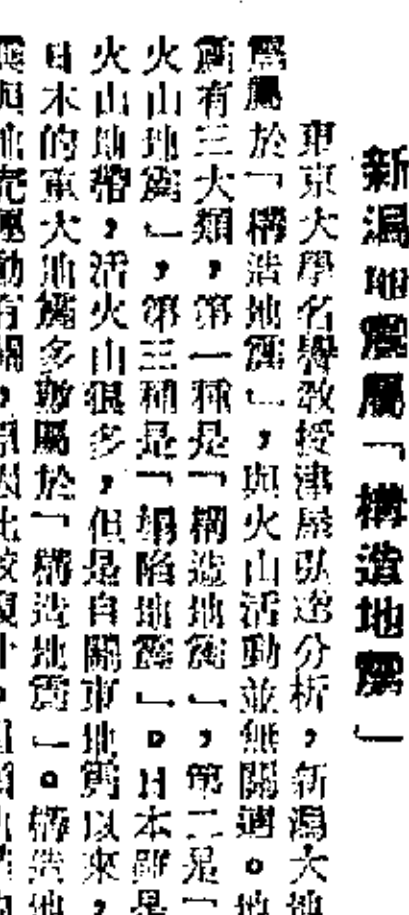 新潟地震屬「構造地震」
東京大學名譽敎授津屋弘逵分析，新潟大地
震屬於「構造地震」，與火山活動並無關連。地
震有三大類，第一種是「構造地震」，第二是「
火山地震」，第三種是「塌陷地震」。日本雖是
火山地帶，活火山很多，但是自關東地震以來，
日本的重大地震多數屬於「構造地震」。構造地
與地殼運動有關，原因比較複